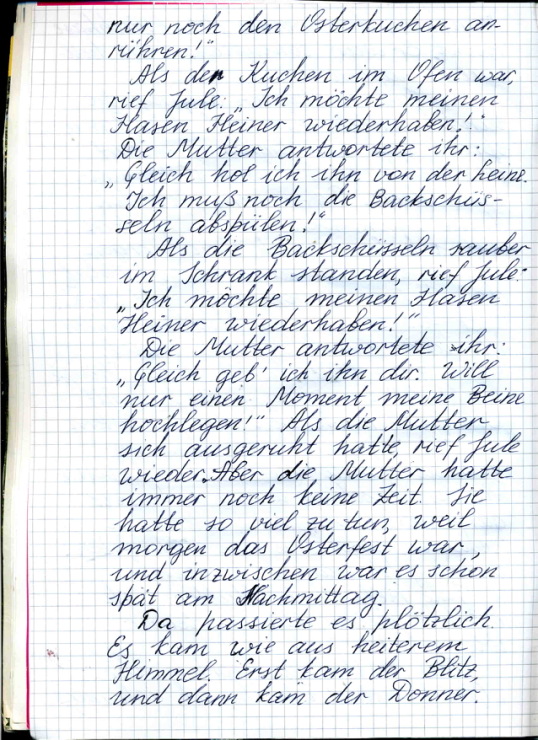 nur noch den Osterkuchen an-
rühren!"
Als der Kuchen im Ofen war,
rief Jule: „Ich möchte meinen
Hasen Heiner wiederhaben!"
Die Mutter antwortete ihr:
„Gleich hol ich ihn von der heine.
Ich muß noch die Backschüs-
seln abspülen!"
Als die Backschüsseln sauber
im Schrank standen, rief Jule:
„Ich möchte meinen Hasen
Heiner wiederhaben!"
Die Mutter antwortete ihr:
„Gleich geb' ich ihn dir. Will
nur einen Moment meine Beine
hochlegen!" Als die Mutter
sich ausgeruht hatte, rief Jule
wieder. Aber die Mutter hatte
immer noch keine Zeit. Sie
hatte so viel zu tun, weil
morgen das Osterfest war,
und inzwischen war es schon
spät am Nachmittag.
Da passierte es plötzlich.
Es kam wie aus heiterem
Himmel. Erst kam der Blitz,
und dann kam der Donner.